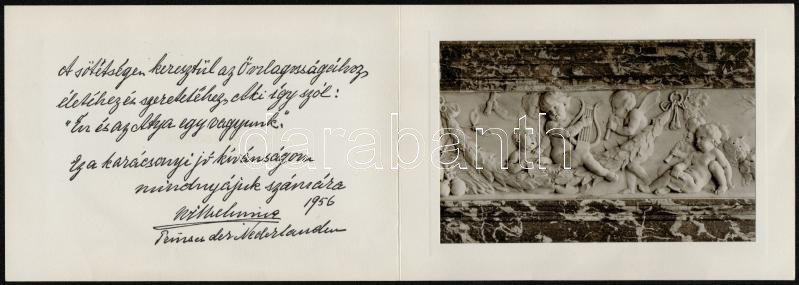 A sötétségen keresztül az Ő világosságához,
életéhez és szeretetéhez, Aki így szól:
"Én és az Atya egy vagyunk".
Ez a karácsonyi jó kívánságom
mindnyájuk számára
Wilhelmina 1956
Prinses der Nederlanden
darabanth